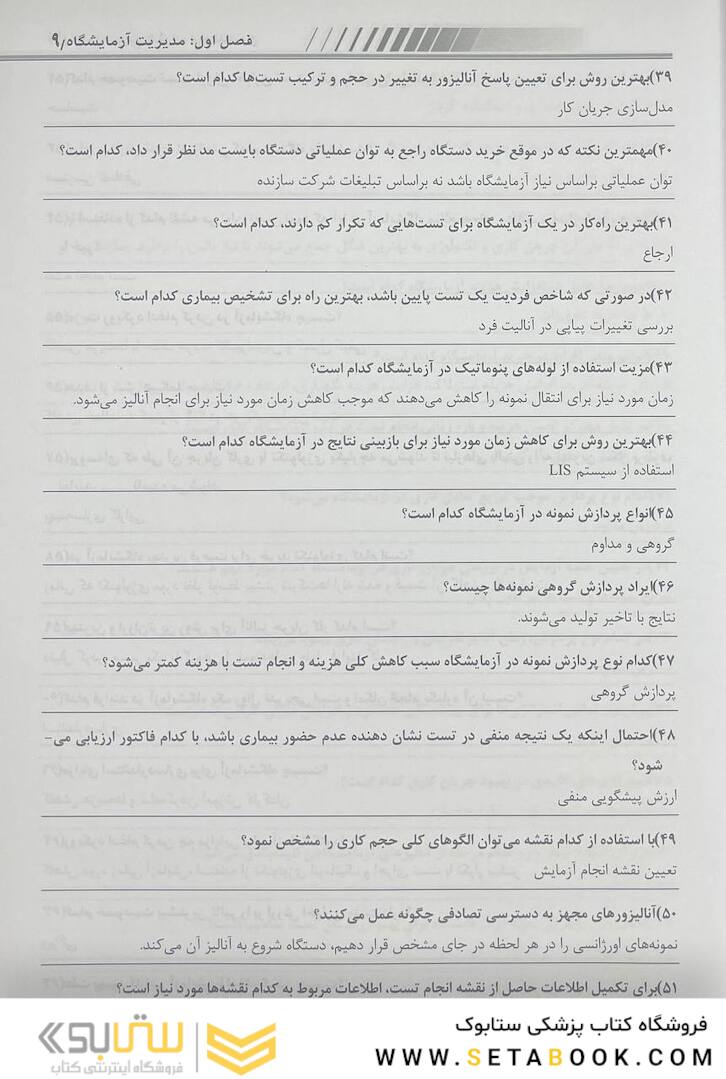 فصل اول: مدیریت آزمایشگاه/۹
۳۹)بهترین روش برای تعیین پاسخ آنالیزور به تغییر در حجم و ترکیب تست‌ها کدام است؟
مدل‌سازی جریان کار
۴۰)مهمترین نکته که در موقع خرید دستگاه راجع به توان عملیاتی دستگاه بایست مد نظر قرار داد، کدام است؟
توان عملیاتی براساس نیاز آزمایشگاه باشد نه براساس تبلیغات شرکت سازنده
۴۱)بهترین راه‌کار در یک آزمایشگاه برای تست‌هایی که تکرار کم دارند، کدام است؟
ارجاع
۴۲)در صورتی که شاخص فردیت یک تست پایین باشد، بهترین راه برای تشخیص بیماری کدام است؟
بررسی تغییرات پیاپی در آنالیت فرد
۴۳)مزیت استفاده از لوله‌های پنوماتیک در آزمایشگاه کدام است؟
زمان مورد نیاز برای انتقال نمونه را کاهش می‌دهند که موجب کاهش زمان مورد نیاز برای انجام آنالیز می‌شود.
۴۴)بهترین روش برای کاهش زمان مورد نیاز برای بازبینی نتایج در آزمایشگاه کدام است؟
استفاده از سیستم LIS
۴۵)انواع پردازش نمونه در آزمایشگاه کدام است؟
گروهی و مداوم
۴۶)ایراد پردازش گروهی نمونه‌ها چیست؟
نتایج با تاخیر تولید می‌شوند.
۴۷)کدام نوع پردازش نمونه در آزمایشگاه سبب کاهش کلی هزینه و انجام تست با هزینه کمتر می‌شود؟
پردازش گروهی
۴۸)احتمال اینکه یک نتیجه منفی در تست نشان دهنده عدم حضور بیماری باشد، با کدام فاکتور ارزیابی می-
شود؟
ارزش پیشگویی منفی
۴۹)با استفاده از کدام نقشه می‌توان الگوهای کلی حجم کاری را مشخص نمود؟
تعیین نقشه انجام آزمایش
۵۰)آنالیزورهای مجهز به دسترسی تصادفی چگونه عمل می‌کنند؟
نمونه‌های اورژانسی را در هر لحظه در جای مشخص قرار دهیم، دستگاه شروع به آنالیز آن می‌کند.
۵۱)برای تکمیل اطلاعات حاصل از نقشه انجام تست، اطلاعات مربوط به کدام نقشه‌ها مورد نیاز است؟
فروشگاه کتاب پزشکی ستابوک
WWW.SETABOOK.COM
ستابوک
فروشگاه اینترنتی کتاب